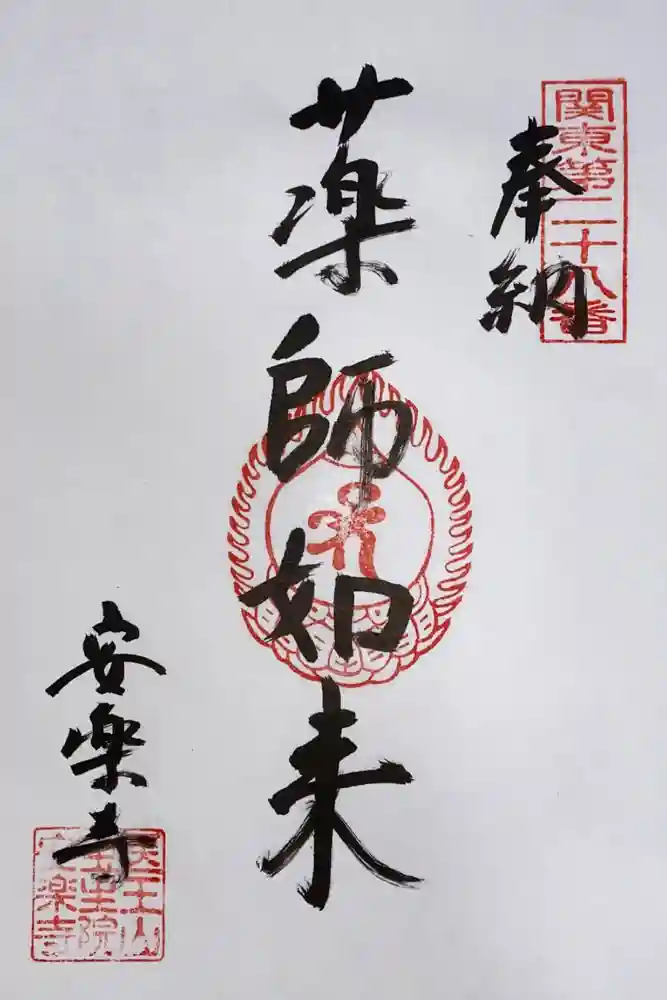 関東第二十八番
奉納
薬師如来
安楽寺
王山
生院
楽寺